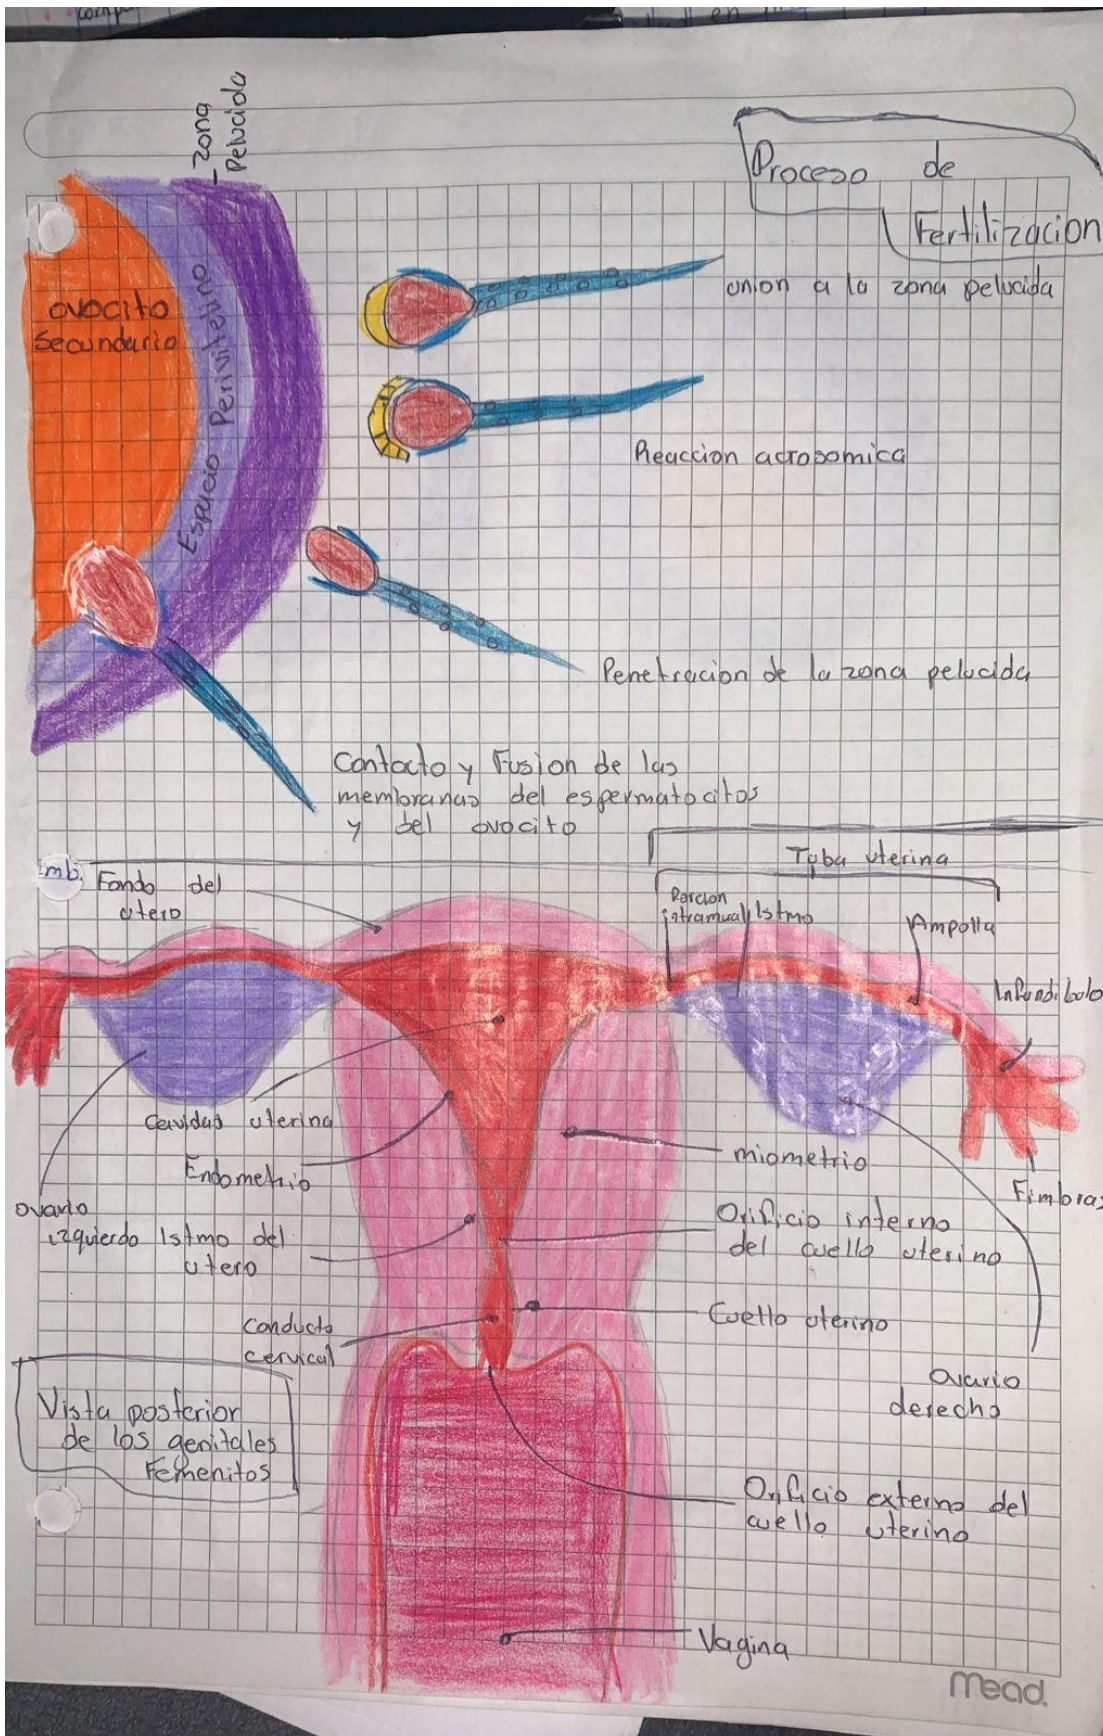 Zona
Pelucida
Proceso de
Fertilizacion
ovocito
Secundario
Espacio Perivitelino
union a la zona pelucida
Reaccion acrosomica
Penetracion de la zona pelucida
Contacto y Fusion de las
membranas del espermatocitos
y del ovocito
Emb.
Fondo del
utero
Tuba uterina
Porcion
intramual
Istmo
Ampolla
Infundibolo
Cavidad uterina
Endometrio
miometrio
Fimbras
ovario
izquierdo
Istmo del
utero
Orificio interno
del cuello uterino
conducto
cervical
Cuello uterino
Ovario
derecho
Vista posterior
de los genitales
Femenitos
Orificio externo del
cuello uterino
Vagina
Mead.